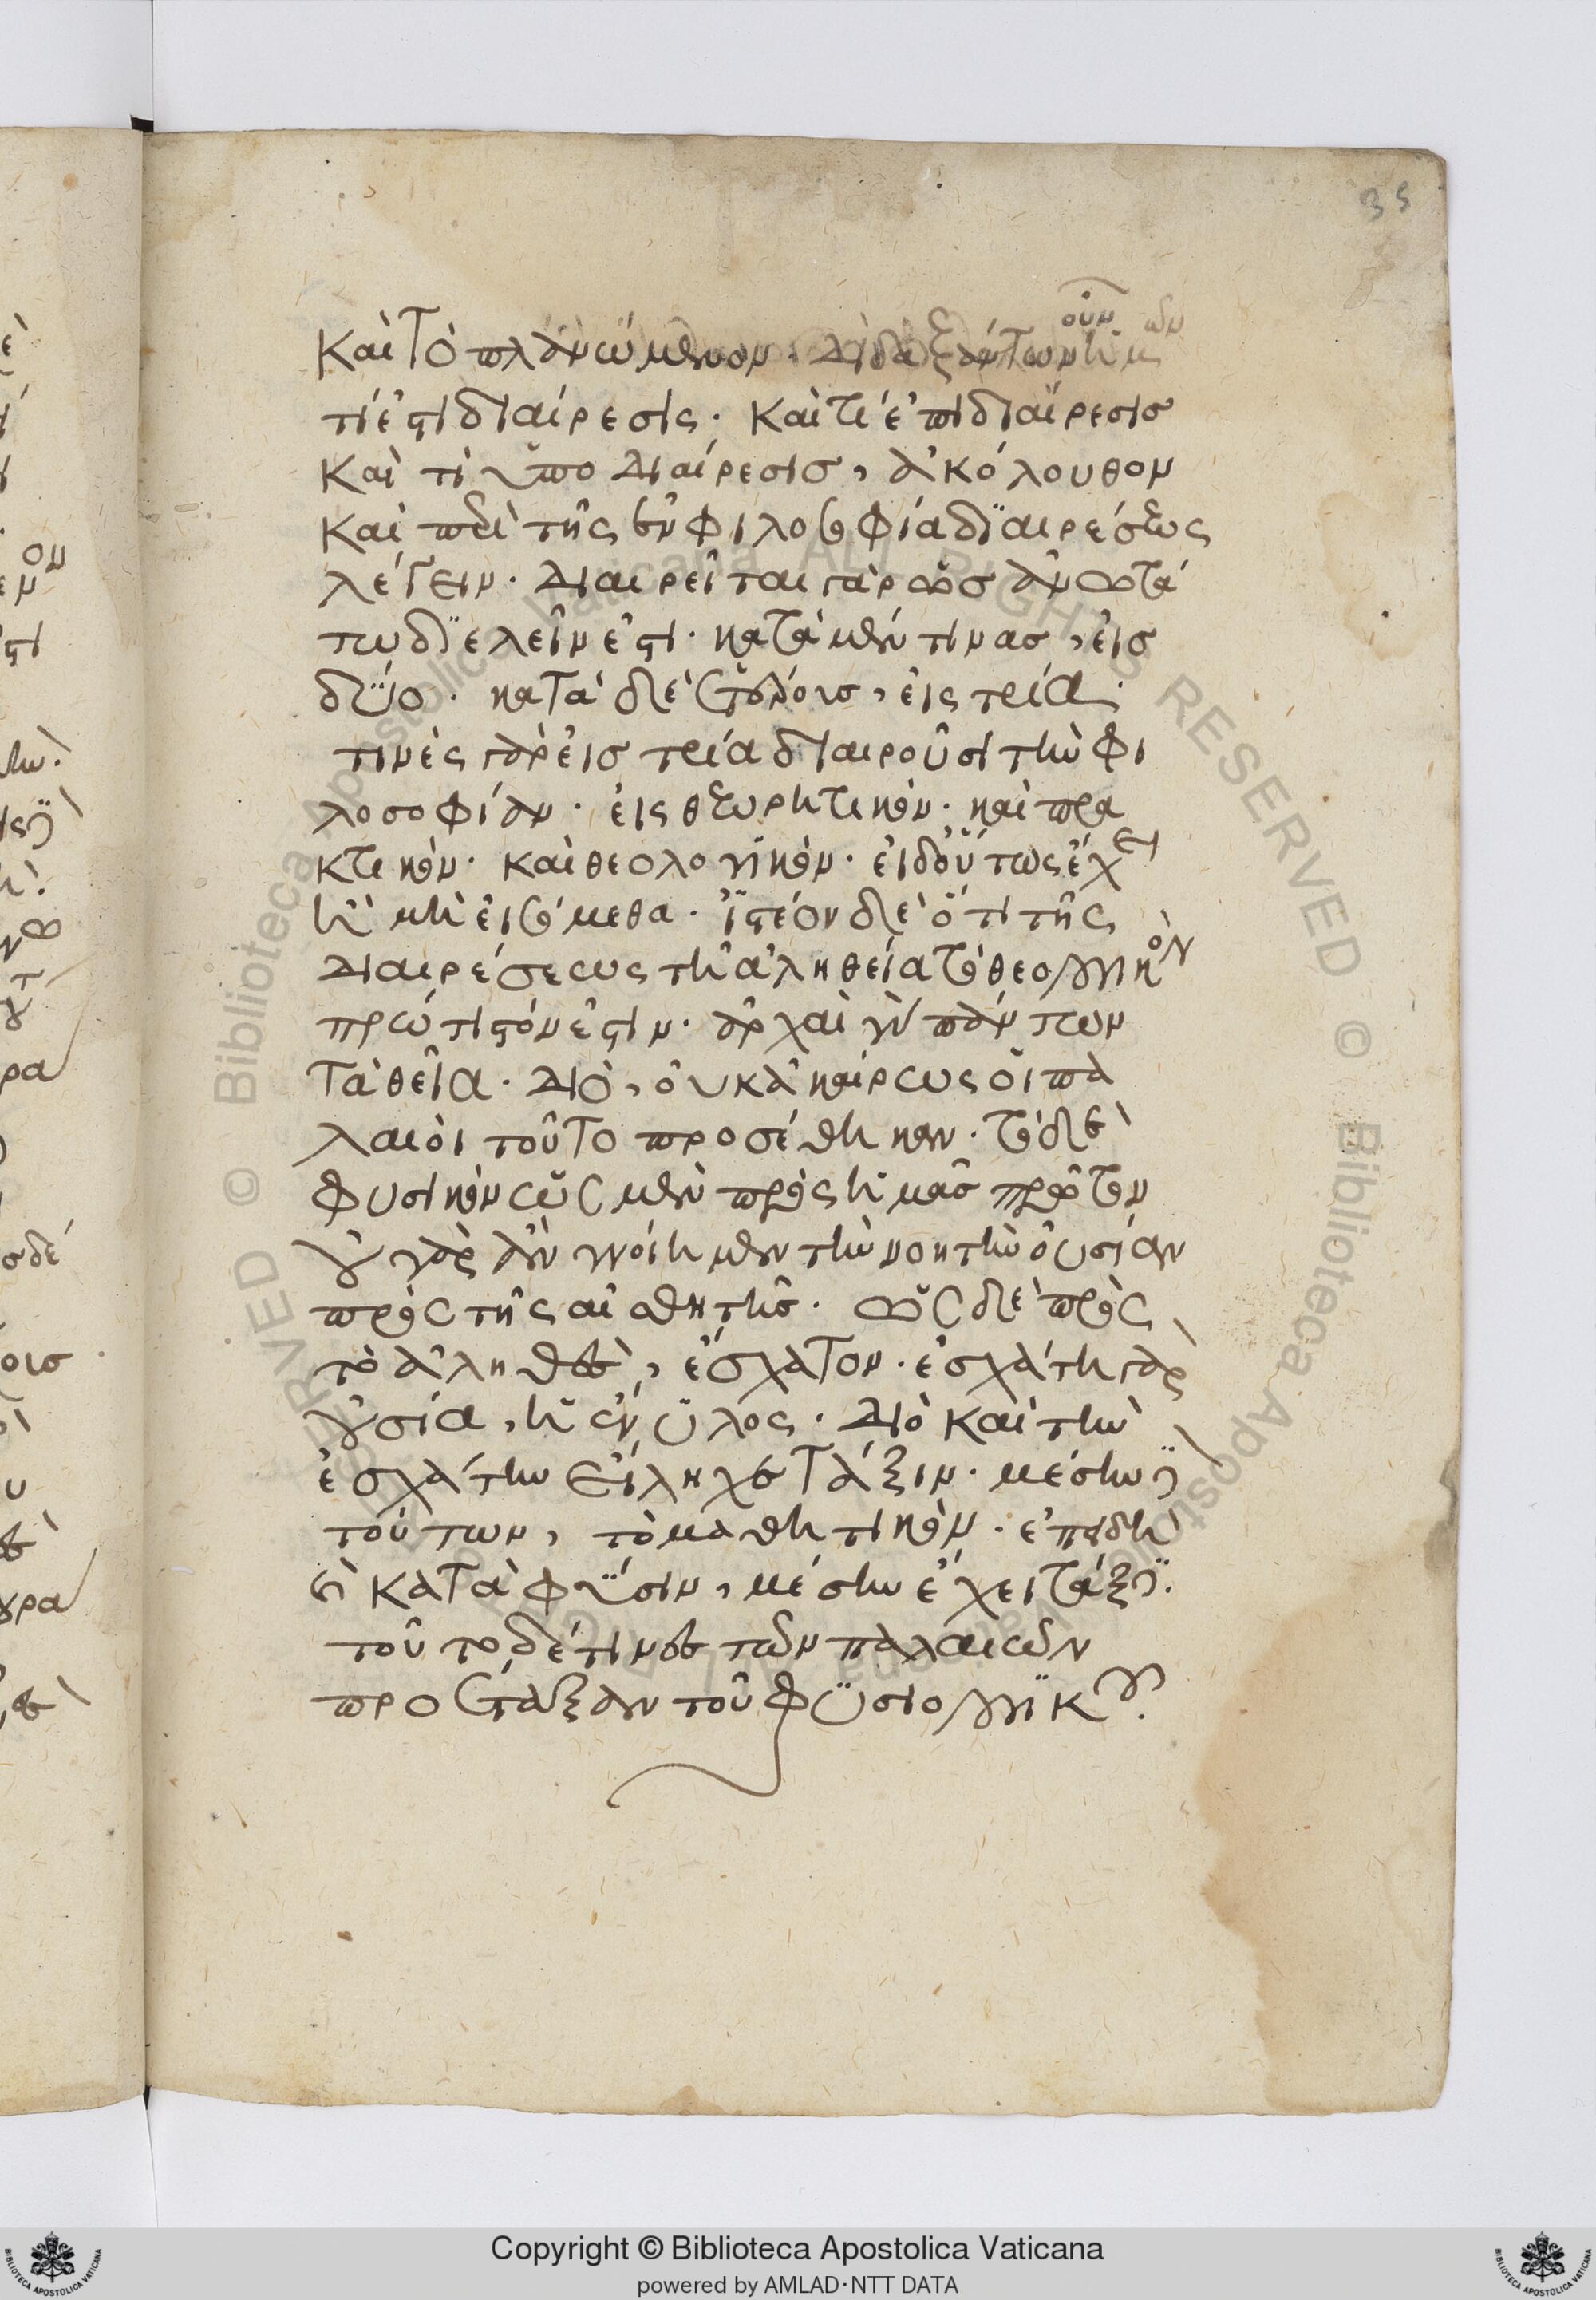 35
καὶ τὸ πλανώμενον. διδαξάντων οὖν ἡμῶν
τί ἐστι διαίρεσις. καὶ τί ἐπιδιαίρεσις
καὶ τί ὑποδιαίρεσις, ἀκόλουθον
καὶ περὶ τῆς ἐν φιλοσοφία διαιρέσεως
λέγειν. διαιρεῖται γὰρ ὡς ἂν
διελεῖν ἐστι. κατὰ μέν τινας, εἰς
δύο. κατὰ δὲ εἰς τρία.
τινὲς γὰρ εἰς τρία διαιροῦσι τὴν φι
λοσοφίαν. εἰς θεωρητικὸν. καὶ πρα
κτικὸν. καὶ θεολογικὸν. εἰ δ' οὕτως ἔχει
ἢ μὴ εἰσόμεθα. ἰστέον δὲ ὅτι τῆς
διαιρέσεως τῆ ἀληθεία τὸ θεολογικὸν
πρώτιστόν ἐστιν. ἀρχαὶ γὰρ πάντων
τὰ θεῖα. διὸ, οὐκ ἀκαίρως οἱ πα
λαιοὶ τοῦτο προσέθηκαν. τὸ δὲ
φυσικὸν ὡς μὲν πρὸς ἡμᾶς πρῶτον
οὐ γὰρ ἂν γνοίημεν τὴν νοητὴν οὐσίαν
πρὸς τῆς αἰσθητῆς. ὡς δὲ πρὸς
τὸ ἀληθὲς, ἔσχατον. ἐσχάτη γὰρ
οὐσία, ἡ ἔνυλος. διὸ καὶ τὴν
ἐσχάτην εἴληχε τάξιν. μέσον δὲ
τούτων, τὸ μαθητικὸν. ἐπειδὴ
καὶ κατὰ φύσιν, μέσην ἔχει τάξιν.
τοῦτο δέ τινες τῶν παλαιῶν
προέταξαν τοῦ φυσιολογικοῦ.
Copyright © Biblioteca Apostolica Vaticana
powered by AMLAD·NTT DATA